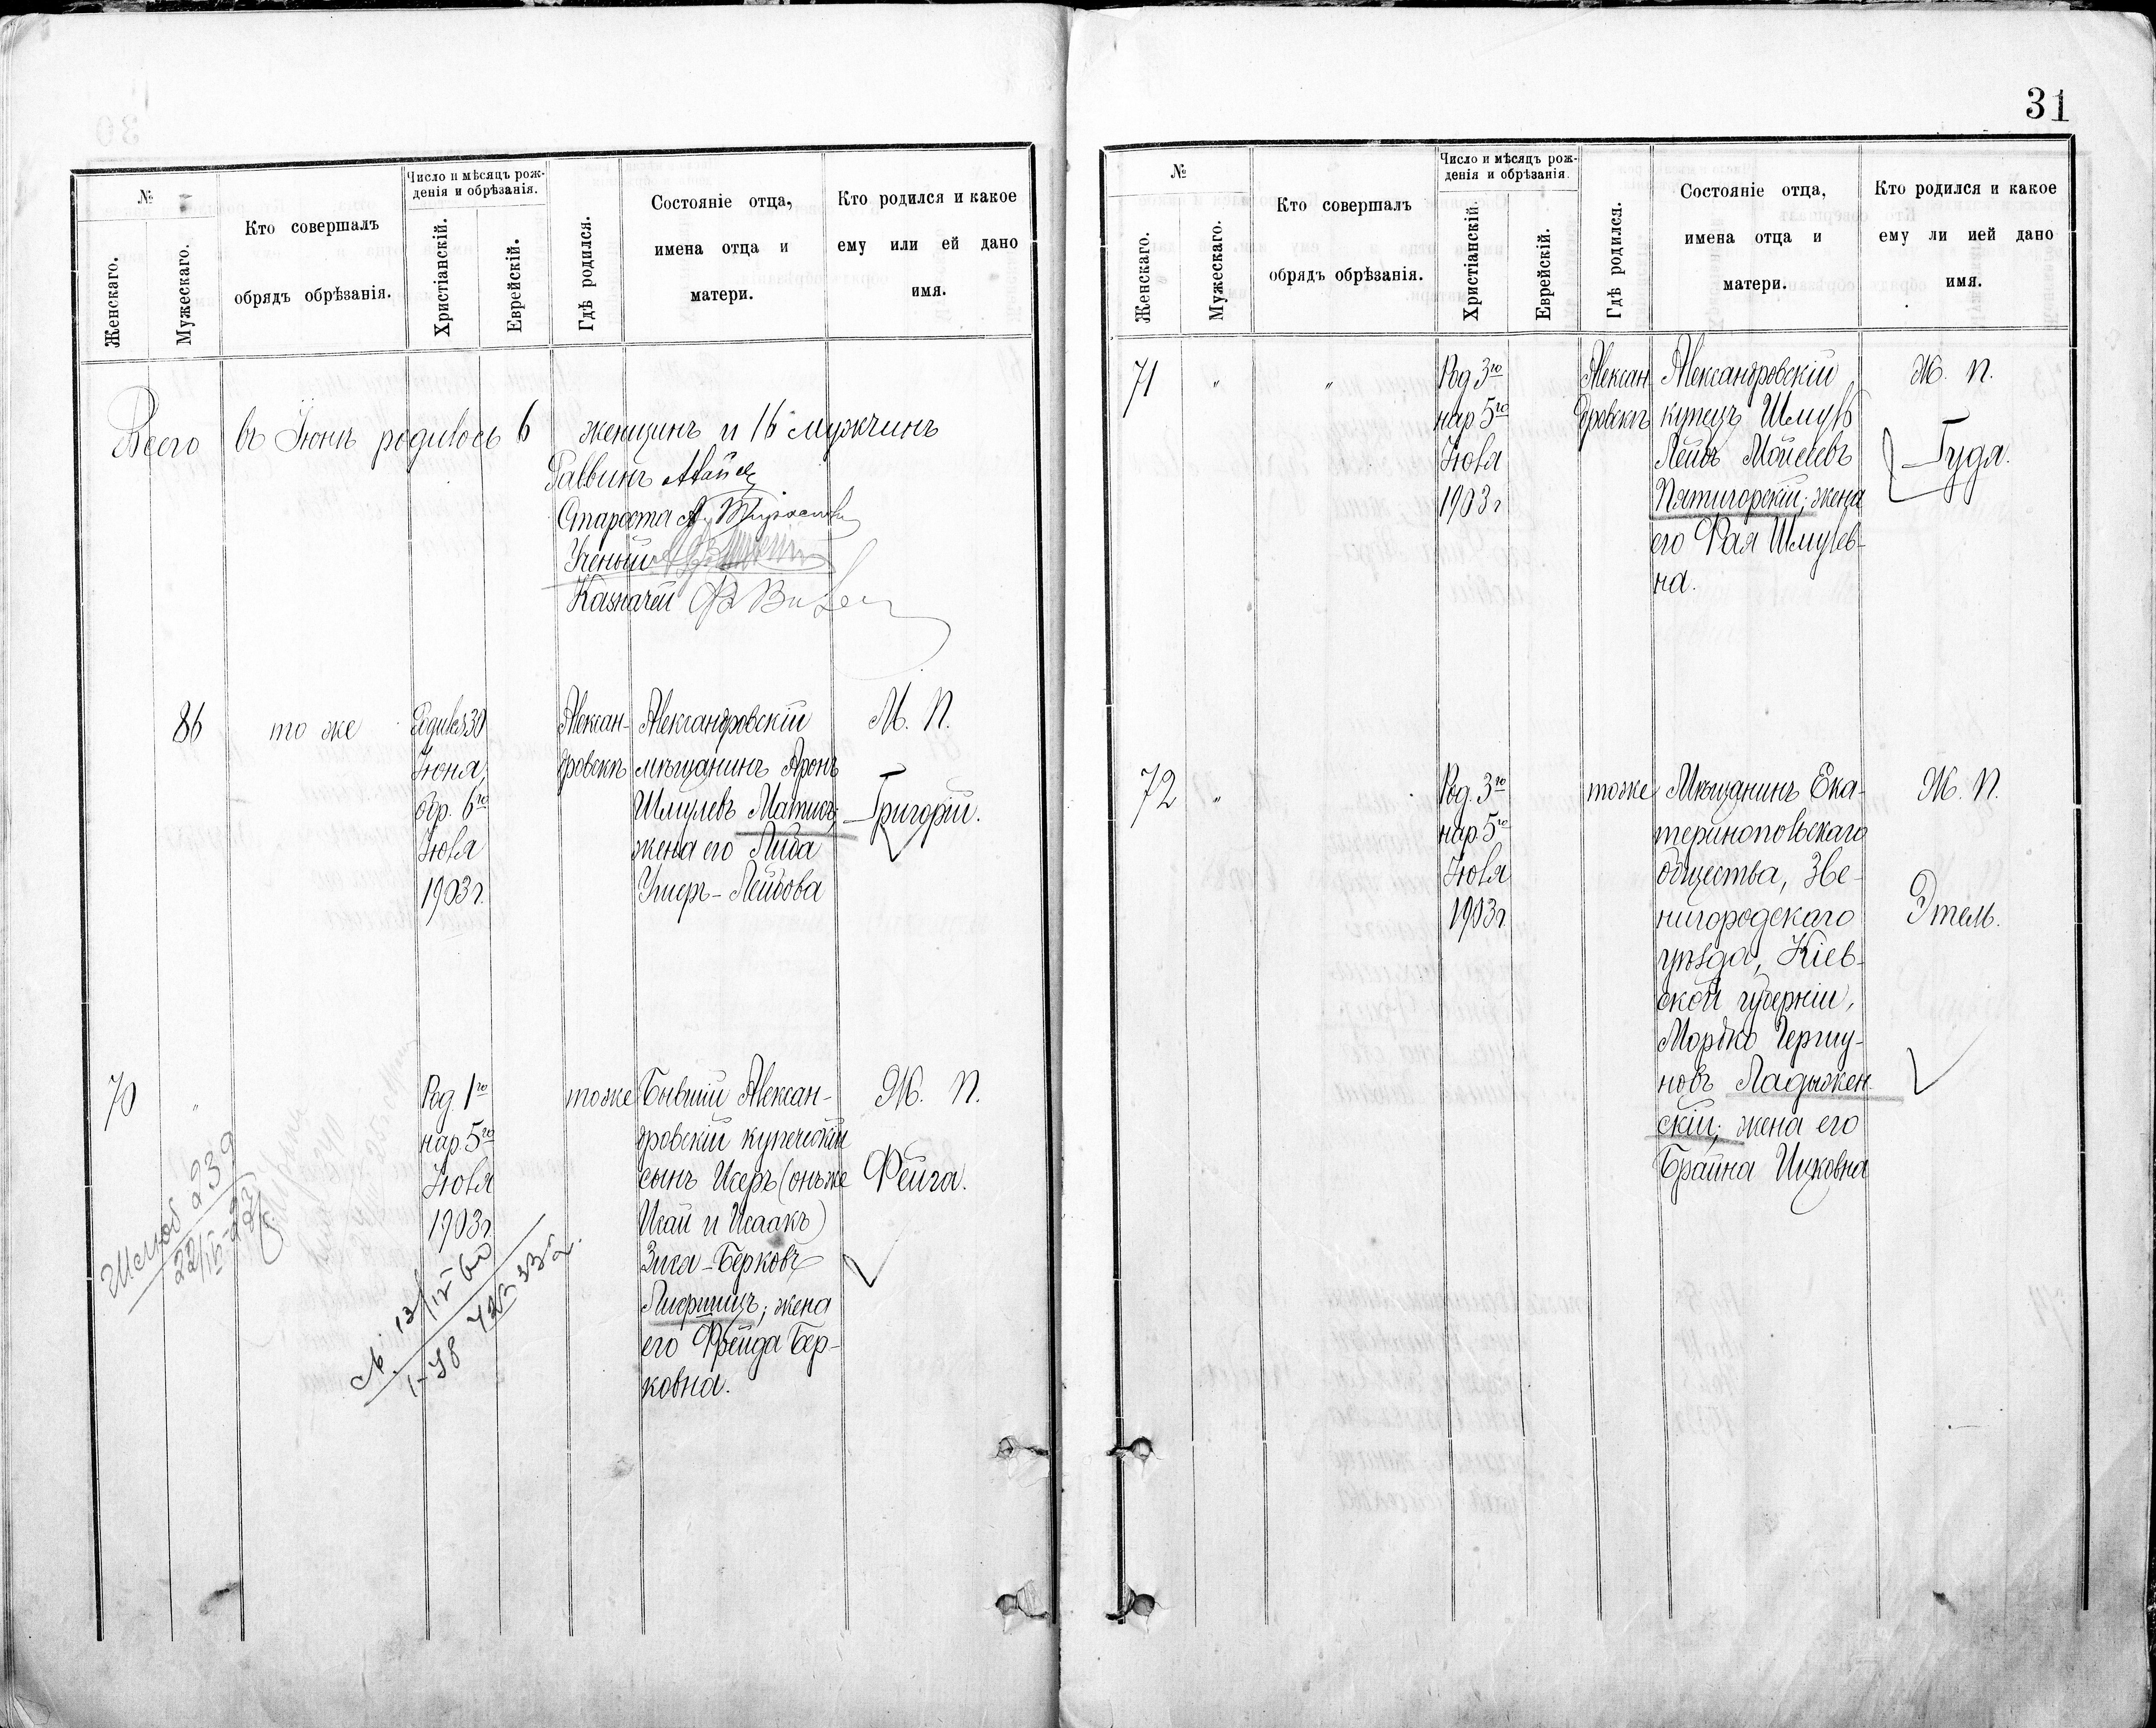 №
Женскаго.
Мужескаго.
Кто совершалъ
обрядъ обрѣзанія.
Число и мѣсяцъ рож-
денія и обрѣзанія.
Христіанскій.
Еврейскій.
Гдѣ родился.
Состояніе отца,
имена отца и
матери.
Кто родился и какое
ему или ей дано
имя.
Всего въ Іюнѣ родилось 6 женщинъ и 16 мужчинъ
Раввинъ
Староста
Ученый
Казначей
86
то же
Родился 30
Іюня,
обр. 6го
Іюля
1903 г.
Алексан-
дровскъ
Александровскій
мѣщанинъ Аронъ
Шмулевъ Матисъ;
жена его Либа
Умеръ-Лейбова
М. П.
Григорій.
70
"
Род. 1го
нар 5го
Іюля
1903 г.
тоже
Бывшій Алексан-
дровскій купеческій
сынъ Исеръ (онъ же
Исай и Исаакъ)
Зися-Берковъ
Лифшицъ; жена
его Фрейда Бер-
ковна.
Ж. П.
Фейга.
239
31
№
Женскаго.
Мужескаго.
Кто совершалъ
обрядъ обрѣзанія.
Число и мѣсяцъ рож-
денія и обрѣзанія.
Христіанскій.
Еврейскій.
Гдѣ родился.
Состояніе отца,
имена отца и
матери.
Кто родился и какое
ему ли ией дано
имя.
71
"
"
Род 3го
нар 5го
Іюля
1903 г
Алексан
дровскъ
Александровскій
купецъ Шмуль
Лейбъ Мойсеевъ
Пятигорскій; жена
его Фая Шмулев-
на.
Ж. П.
Гуда.
72
"
Род. 3го
нар 5го
Іюля
1903 г
тоже
Мѣщанинъ Ека-
теринопольскаго
общества, Зве-
нигородскаго
уѣзда, Кіев-
ской губерніи,
Мордко Гершу-
новъ Ладыжен-
скій; жена его
Брайна Ицковна
Ж. П.
Этель.